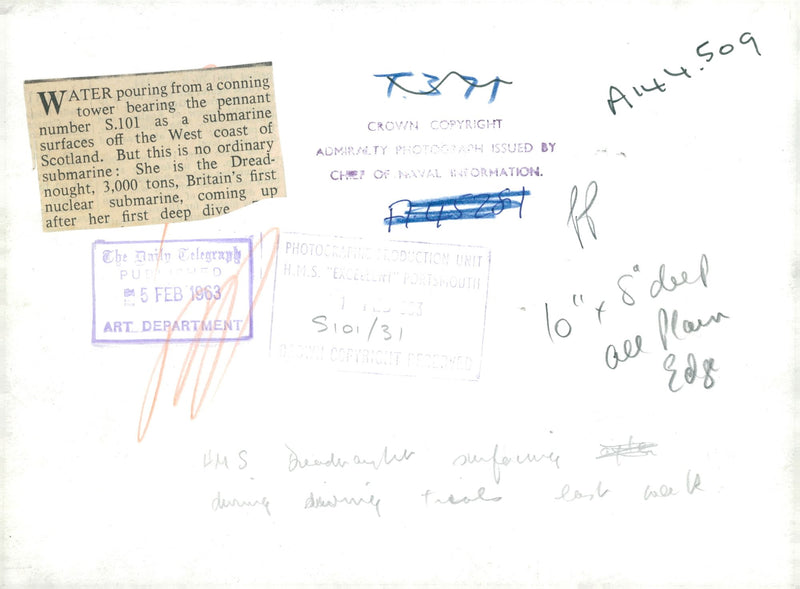 WATER pouring from a conning
tower bearing the pennant
number S.101 as a submarine
surfaces off the West coast of
Scotland. But this is no ordinary
submarine: She is the Dread-
nought, 3,000 tons, Britain's first
nuclear submarine, coming up
after her first deep dive
CROWN COPYRIGHT
ADMIRALTY PHOTOGRAPH ISSUED BY
CHIEF OF NAVAL INFORMATION.
A144.509
The Daily Telegraph
PUBLISHED
5 FEB 1963
ART DEPARTMENT
PHOTOGRAPHIC PRODUCTION UNIT
H.M.S. "EXCELLENT" PORTSMOUTH
S101/31
CROWN COPYRIGHT RESERVED
10" x 8" deep
all Plain
Edge
HMS Dreadnought surfacing
during diving trials last week